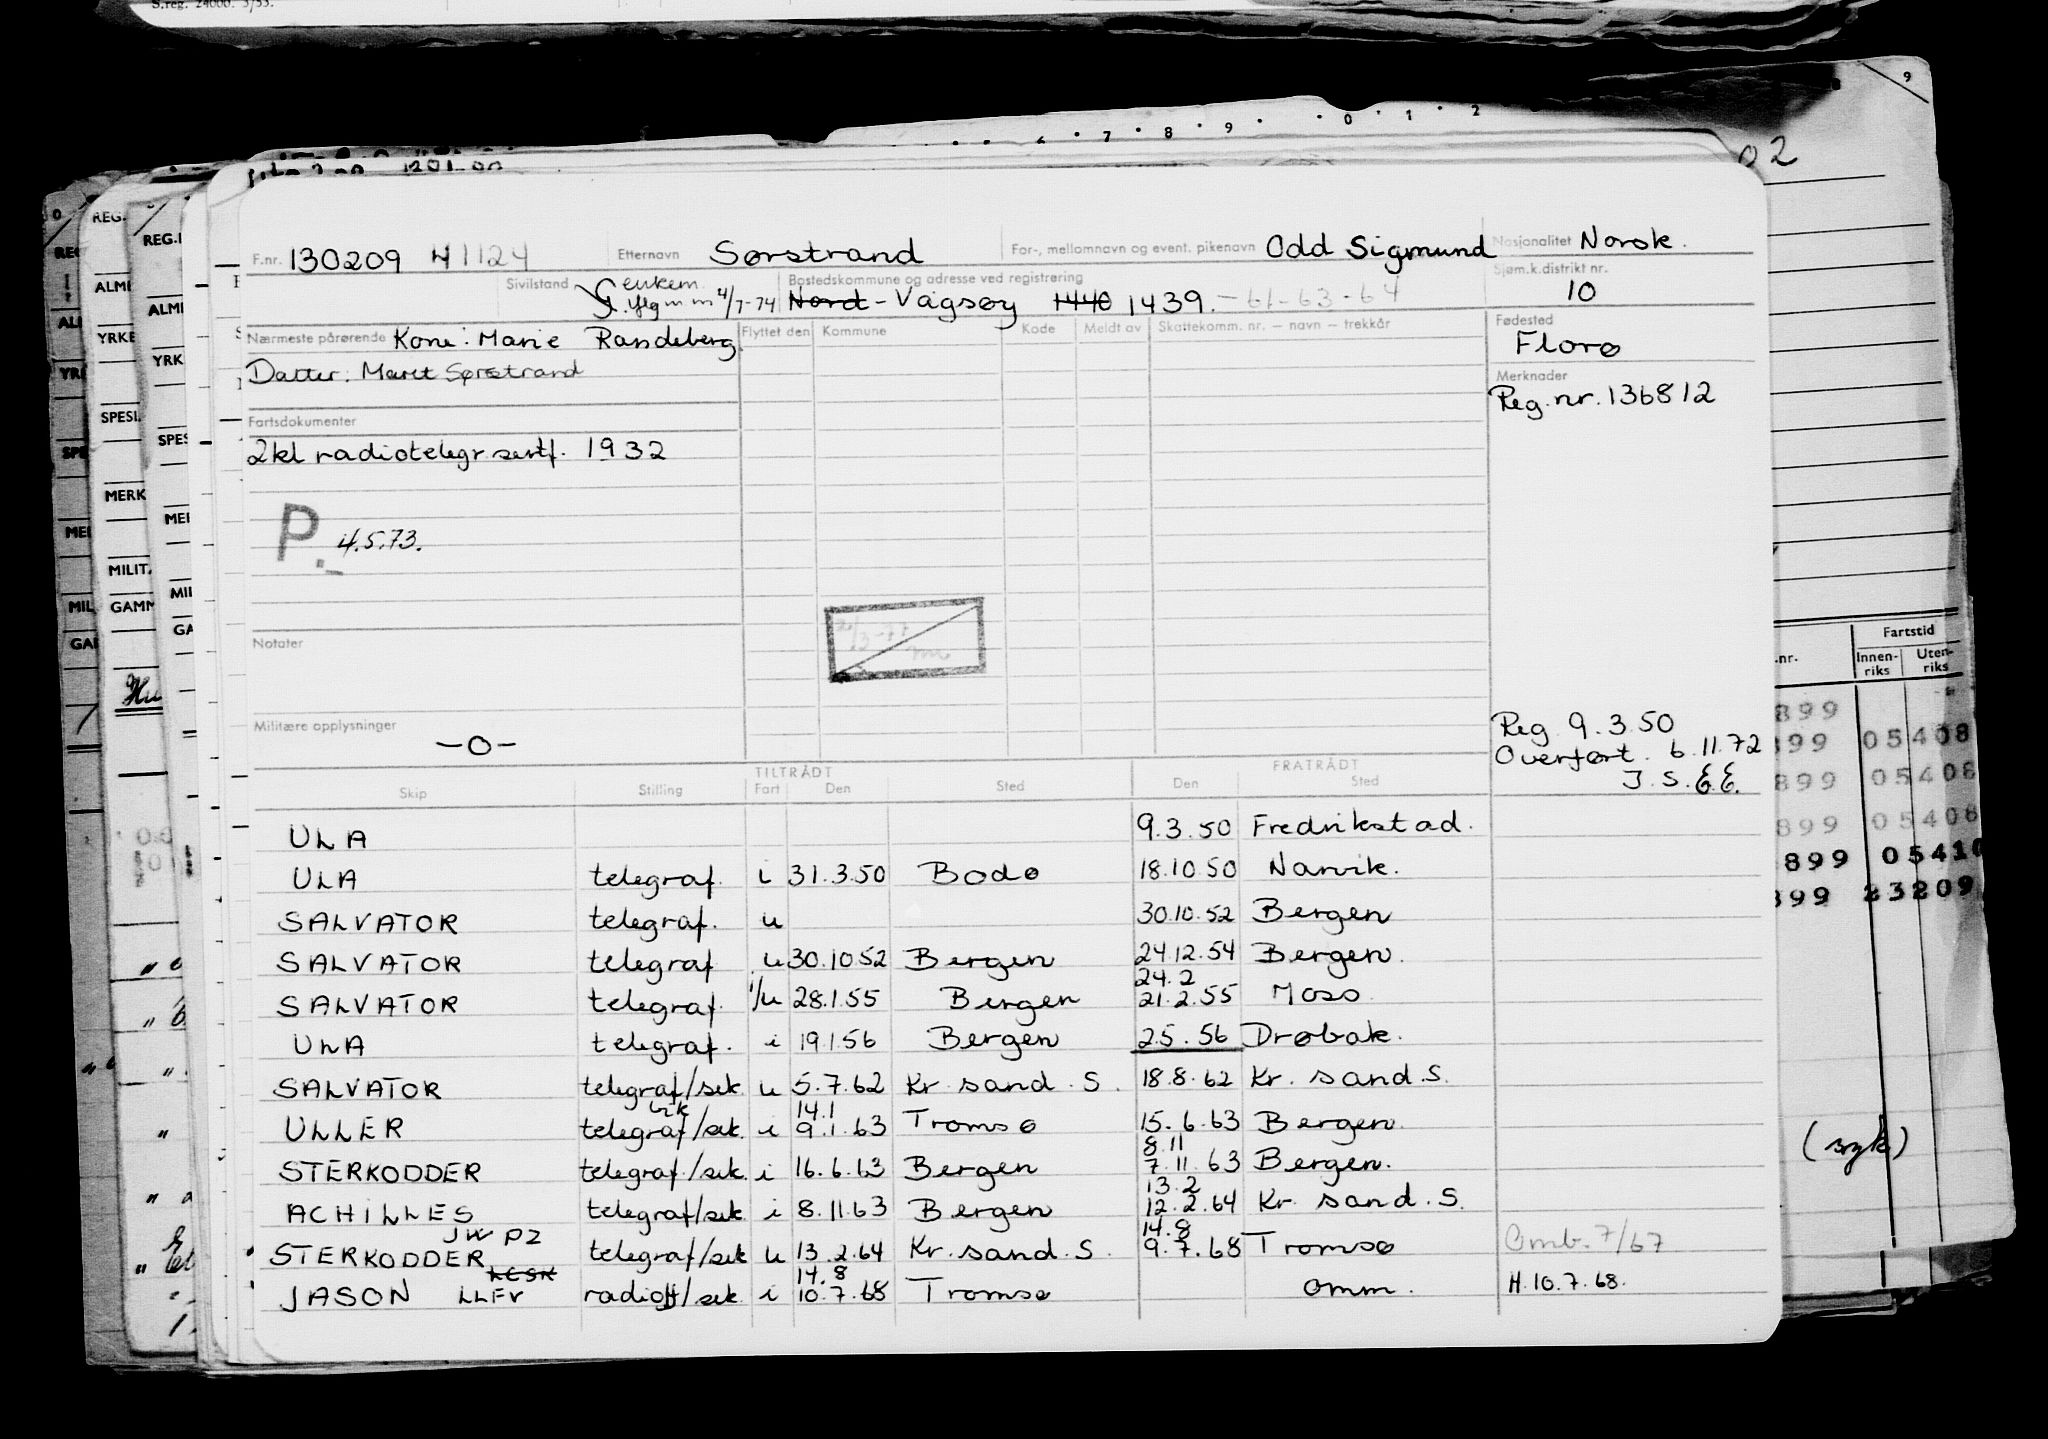 S.reg. 24000. 3/55.
9
6 . 7 . 8 . 9 . . 0 . 1 . 2
02
F.nr. 130209 41124 Etternavn Sørstrand For-, mellomnavn og event. pikenavn Odd Sigmund Nasjonalitet Norsk.
Sivilstand G enkem. 4/7-74 Bostedskommune og adresse ved registrering Nord - Vågsøy 1440 1439. -61-63-64 Sjøm.k.distrikt nr. 10
Nærmeste pårørende Kone: Marie Randeberg. Flyttet den Kommune Kode Meldt av Skattekomm. nr. – navn – trekkår Fødested Florø
Datter: Maret Sørstrand
Merknader
Reg. nr. 136812
Fartsdokumenter
2kl radiotelegr sertf. 1932
P.- 4.5.73.
Notater
Militære opplysninger -0-
Reg 9.3.50
Overført. 6.11.72
J.S. E.E.
TILTRÅDT FRATRÅDT
Skip Stilling Fart Den Sted Den Sted
ULA 9.3.50 Fredrikstad.
ULA telegraf. i 31.3.50 Bodø 18.10.50 Narvik.
SALVATOR telegraf. u 30.10.52 Bergen
SALVATOR telegraf u 30.10.52 Bergen 24.12.54 Bergen.
SALVATOR telegraf i/u 28.1.55 Bergen 24.2 21.2.55 Moss.
ULA telegraf. i 19.1.56 Bergen 2.5.56 Drøbak.
SALVATOR telegraf/sek u 5.7.62 Kr. sand. S. 18.8.62 Kr. sand. S.
ULLER telegraf/sek. i 14.1 9.1.63 Tromsø 15.6.63 Bergen.
STERKODDER telegraf/sek. i 16.6.63 Bergen 8.11 7.11.63 Bergen.
ACHILLES telegraf/sek i 8.11.63 Bergen 13.2 12.2.64 Kr. sand. S.
STERKODDER JWPZ telegraf/sek u 13.2.64 Kr. sand. S. 14.8 9.7.68 Tromsø Omb. 7/67
JASON LLEV radioff/sek i 14.8 10.7.68 Tromsø omm. H. 10.7.68.
REG.
ALM
YRKE
SPESI
MERK
MILIT
GAMM
Fartstid
.nr. Innen-riks Uten-riks
899
899 05408
899 05408
899 05408
899 05410
899 23209
(syk)